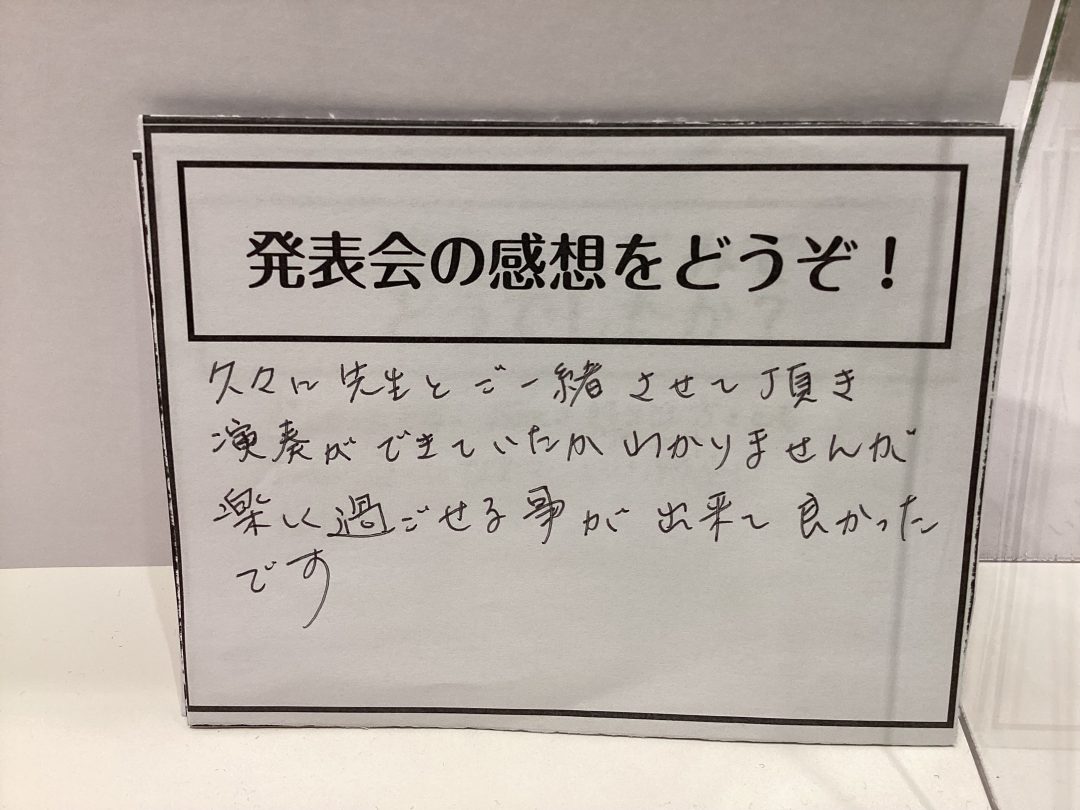 発表会の感想をどうぞ！
久々に先生とご一緒させて頂き
演奏ができていたかわかりませんが
楽しく過ごせる事が出来て良かった
です